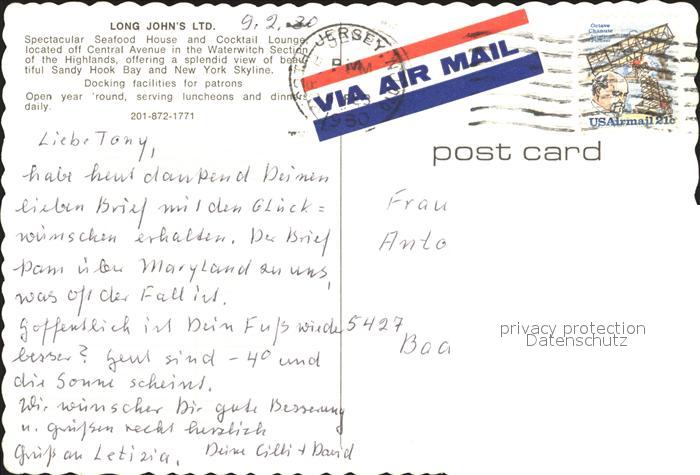 LONG JOHN'S LTD. 9.2.80
Spectacular Seafood House and Cocktail Lounge
located off Central Avenue in the Waterwitch Section
of the Highlands, offering a splendid view of beau
tiful Sandy Hook Bay and New York Skyline.
Docking facilities for patrons
Open year 'round, serving luncheons and dinner
daily.
201-872-1771
Liebe Tony,
habe heut dankend Deinen
lieben Brief mit den Glück=
wünschen erhalten. Der Brief
kam über Maryland zu uns,
was oft der Fall ist.
Hoffentlich ist Dein Fuß wieder
besser? Heut sind -4° und
die Sonne scheint.
Wir wünschen Dir gute Besserung
u. grüßen recht herzlich
Gruß an Letizia. Deine Cilli + David
JERSEY
PM
1980
VIA AIR MAIL
Octave
Chanute
USAirmail 21c
post card
Frau
Anto
5427
Baa
privacy protection
Datenschutz